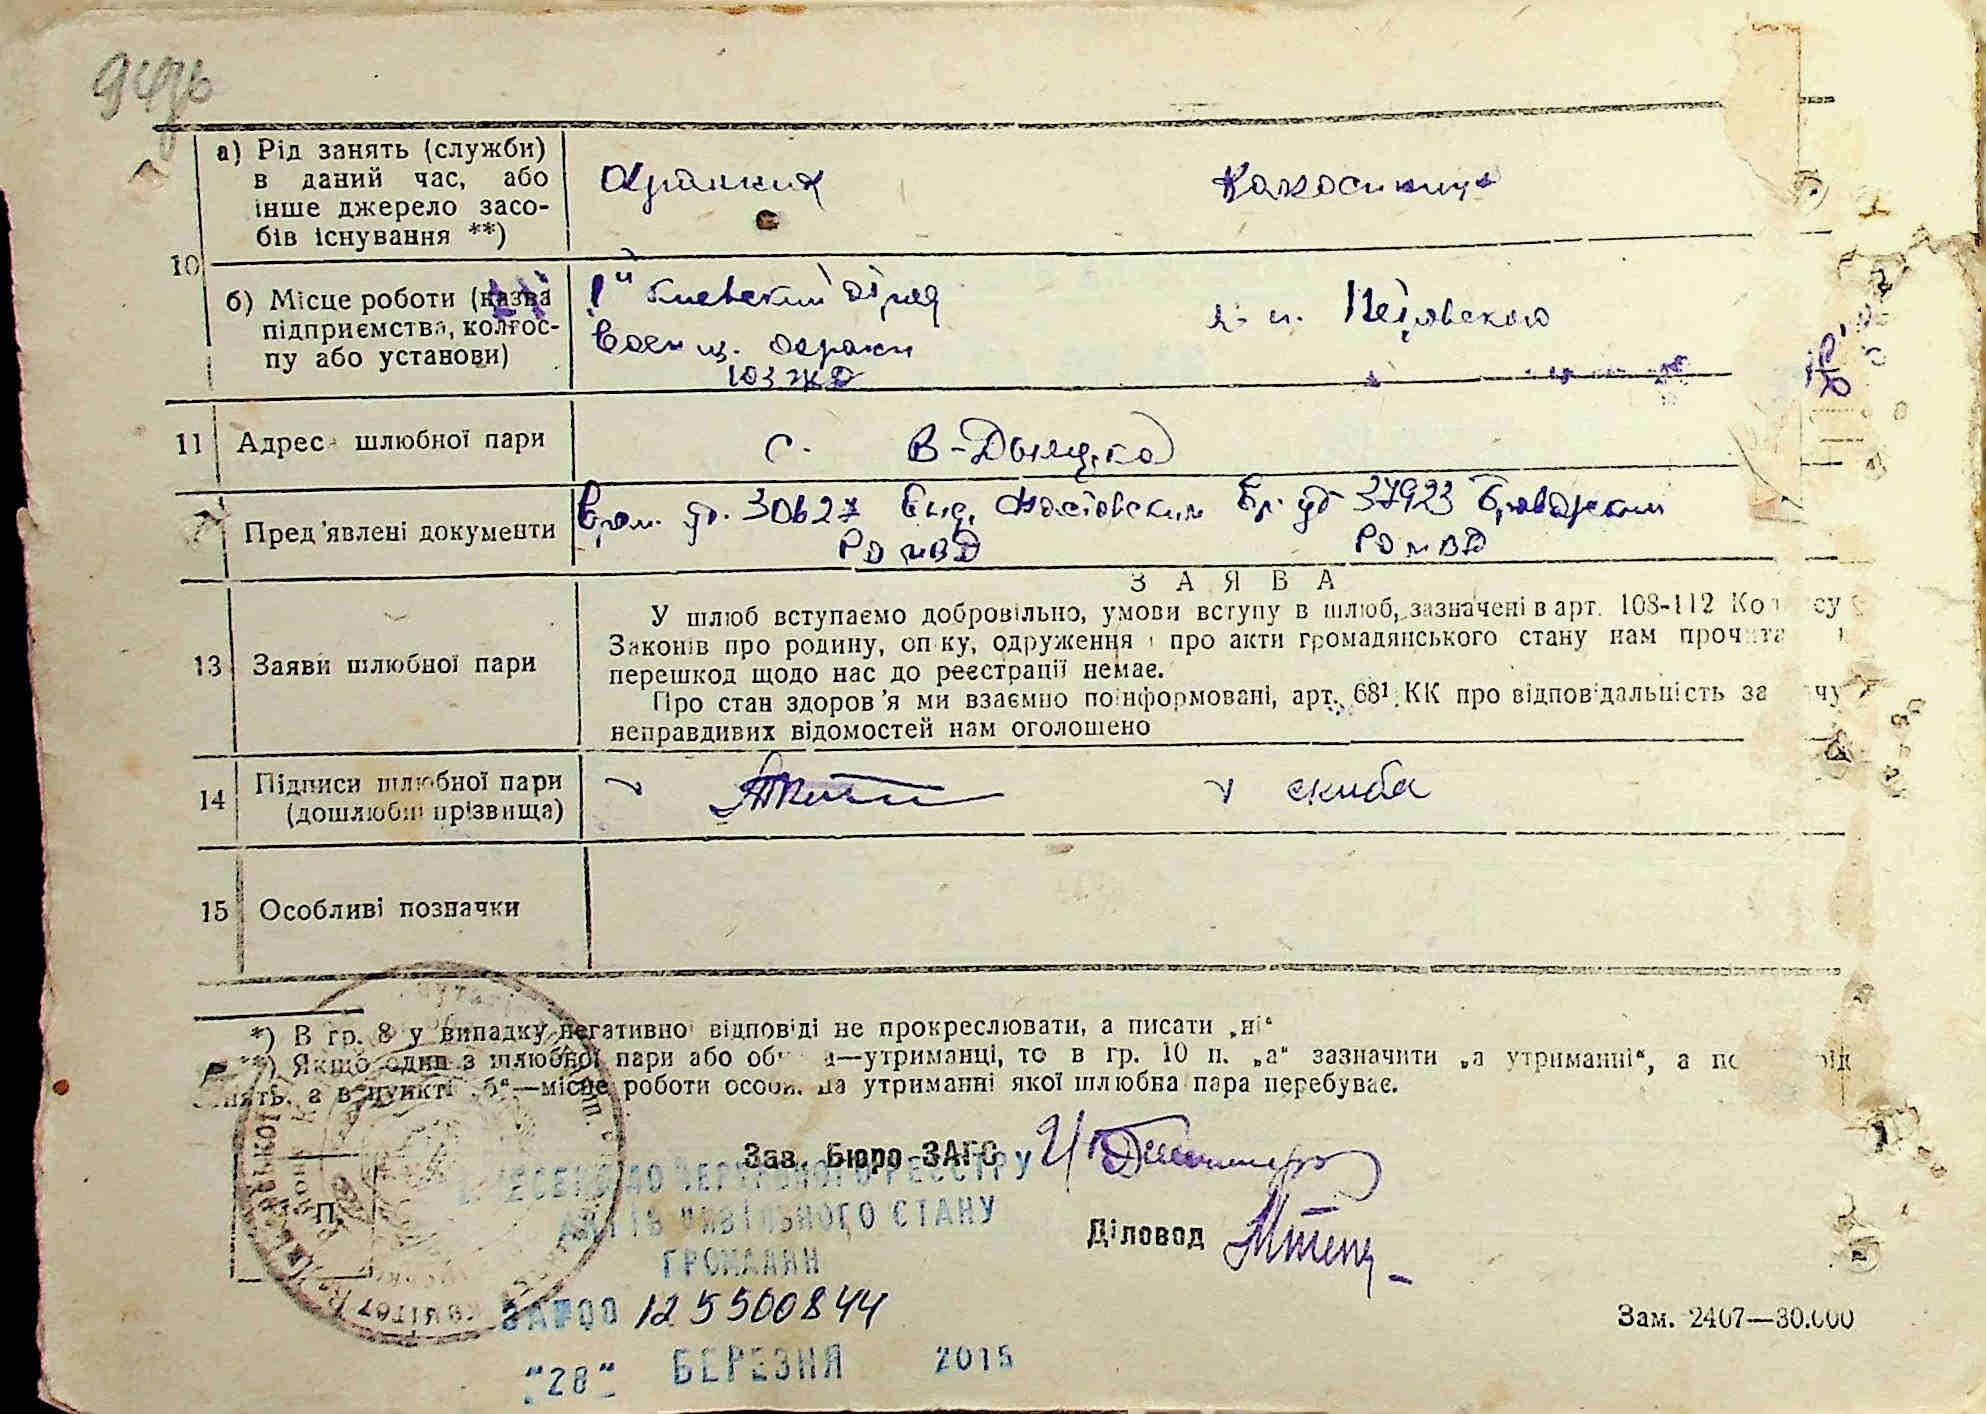 а) Рід занять (служби)
в даний час, або
інше джерело засо-
бів існування **)
10
б) Місце роботи (назва
підприємства, колгос-
пу або установи)
Киевский отряд
Воениз. охраны
ЮЗЖД
Петровского
11 Адрес шлюбної пари
с. В-Дымерка
Пред'явлені документи
Врем. уд. 30627 Выд. Фастовским Вр. уд 37923 Броварским
РО МВД РО МВД
ЗАЯВА
13 Заяви шлюбної пари
У шлюб вступаємо добровільно, умови вступу в шлюб, зазначені в арт. 108-112
Законів про родину, опіку, одруження і про акти громадянського стану нам
перешкод щодо нас до реєстрації немає.
Про стан здоров'я ми взаємно поінформовані, арт. 68¹ КК про відповідальність за
неправдивих відомостей нам оголошено
14 Підписи шлюбної пари
(дошлюбні прізвища)
скиба
15 Особливі позначки
*) В гр. 8 у випадку негативної відповіді не прокреслювати, а писати „ні“
**) Якщо один з шлюбної пари або —утриманці, то в гр. 10 п. „а“ зазначити „а утриманні“, а
а в пункті „б“—місце роботи особи, на утриманні якої шлюбна пара перебуває.
Зав. Бюро ЗАГС
ВНЕСЕНО ДО ДЕРЖАВНОГО РЕЄСТРУ
АКТІВ ЦИВІЛЬНОГО СТАНУ
ГРОМАДЯН
Діловод
М. П.
ЗА №00 125500844
Зам. 2407—30.000
"28" БЕРЕЗНЯ 2015